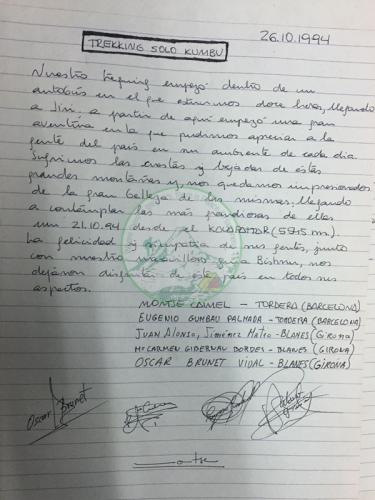 26.10.1994
TREKKING SOLO KUMBU
Nuestro trequing empezó dentro de un
autobús en el que estuvimos doce horas, llegando
a Jiri. A partir de aquí empezó una gran
aventura en la que pudimos apreciar a la
gente del país en su ambiente de cada día.
Sufrimos las crestas y bajadas de estas
grandes montañas y, nos quedamos impresionados
de la gran belleza de las mismas, llegando
a contemplar las más grandiosas de ellas
un 21.10.94 desde el KALAPATAR (5545 m.)
La felicidad y simpatia de sus gentes, junto
con nuestro maravilloso guia Bishnu, nos
dejaron disfrutar de este país en todos sus
aspectos.
MONTSE CAMEL - TORDERA (BARCELONA)
EUGENIO GUMBAU PALMADA - TORDERA (BARCELONA)
JUAN ALONSO, Jiménez Mateo - BLANES (Girona)
Mª CARMEN GIDERVAU BORDES - BLANES (GIRONA)
OSCAR BRUNET VIDAL - BLANES (GIRONA)
Oscar Brunet